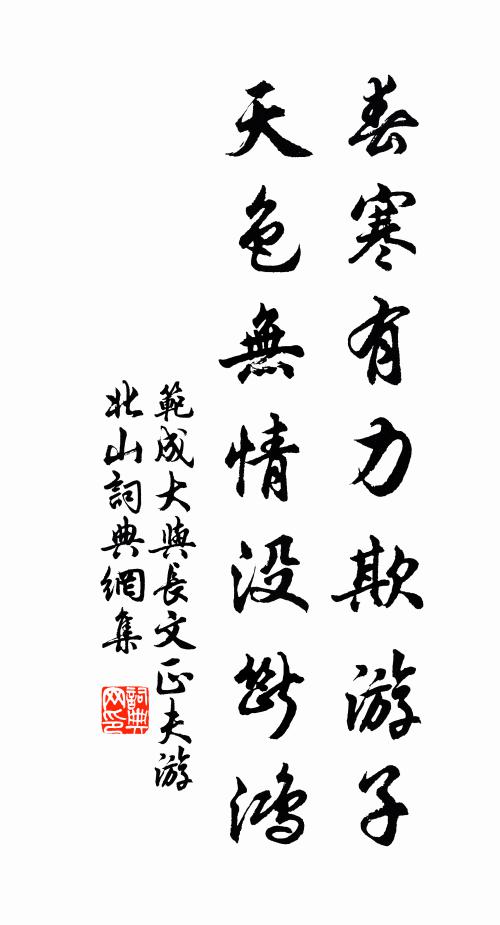 春寒有力欺游子
天色無情没斷鴻
範成大與長文正夫游
北山詞典網集
詞典網印